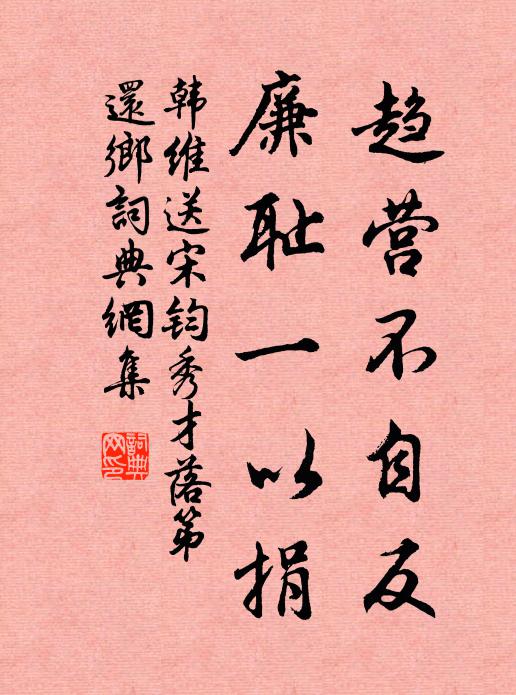 趋营不自反
廉耻一以捐
韩维送宋钧秀才落第
還鄉詞典網集
詞典网印